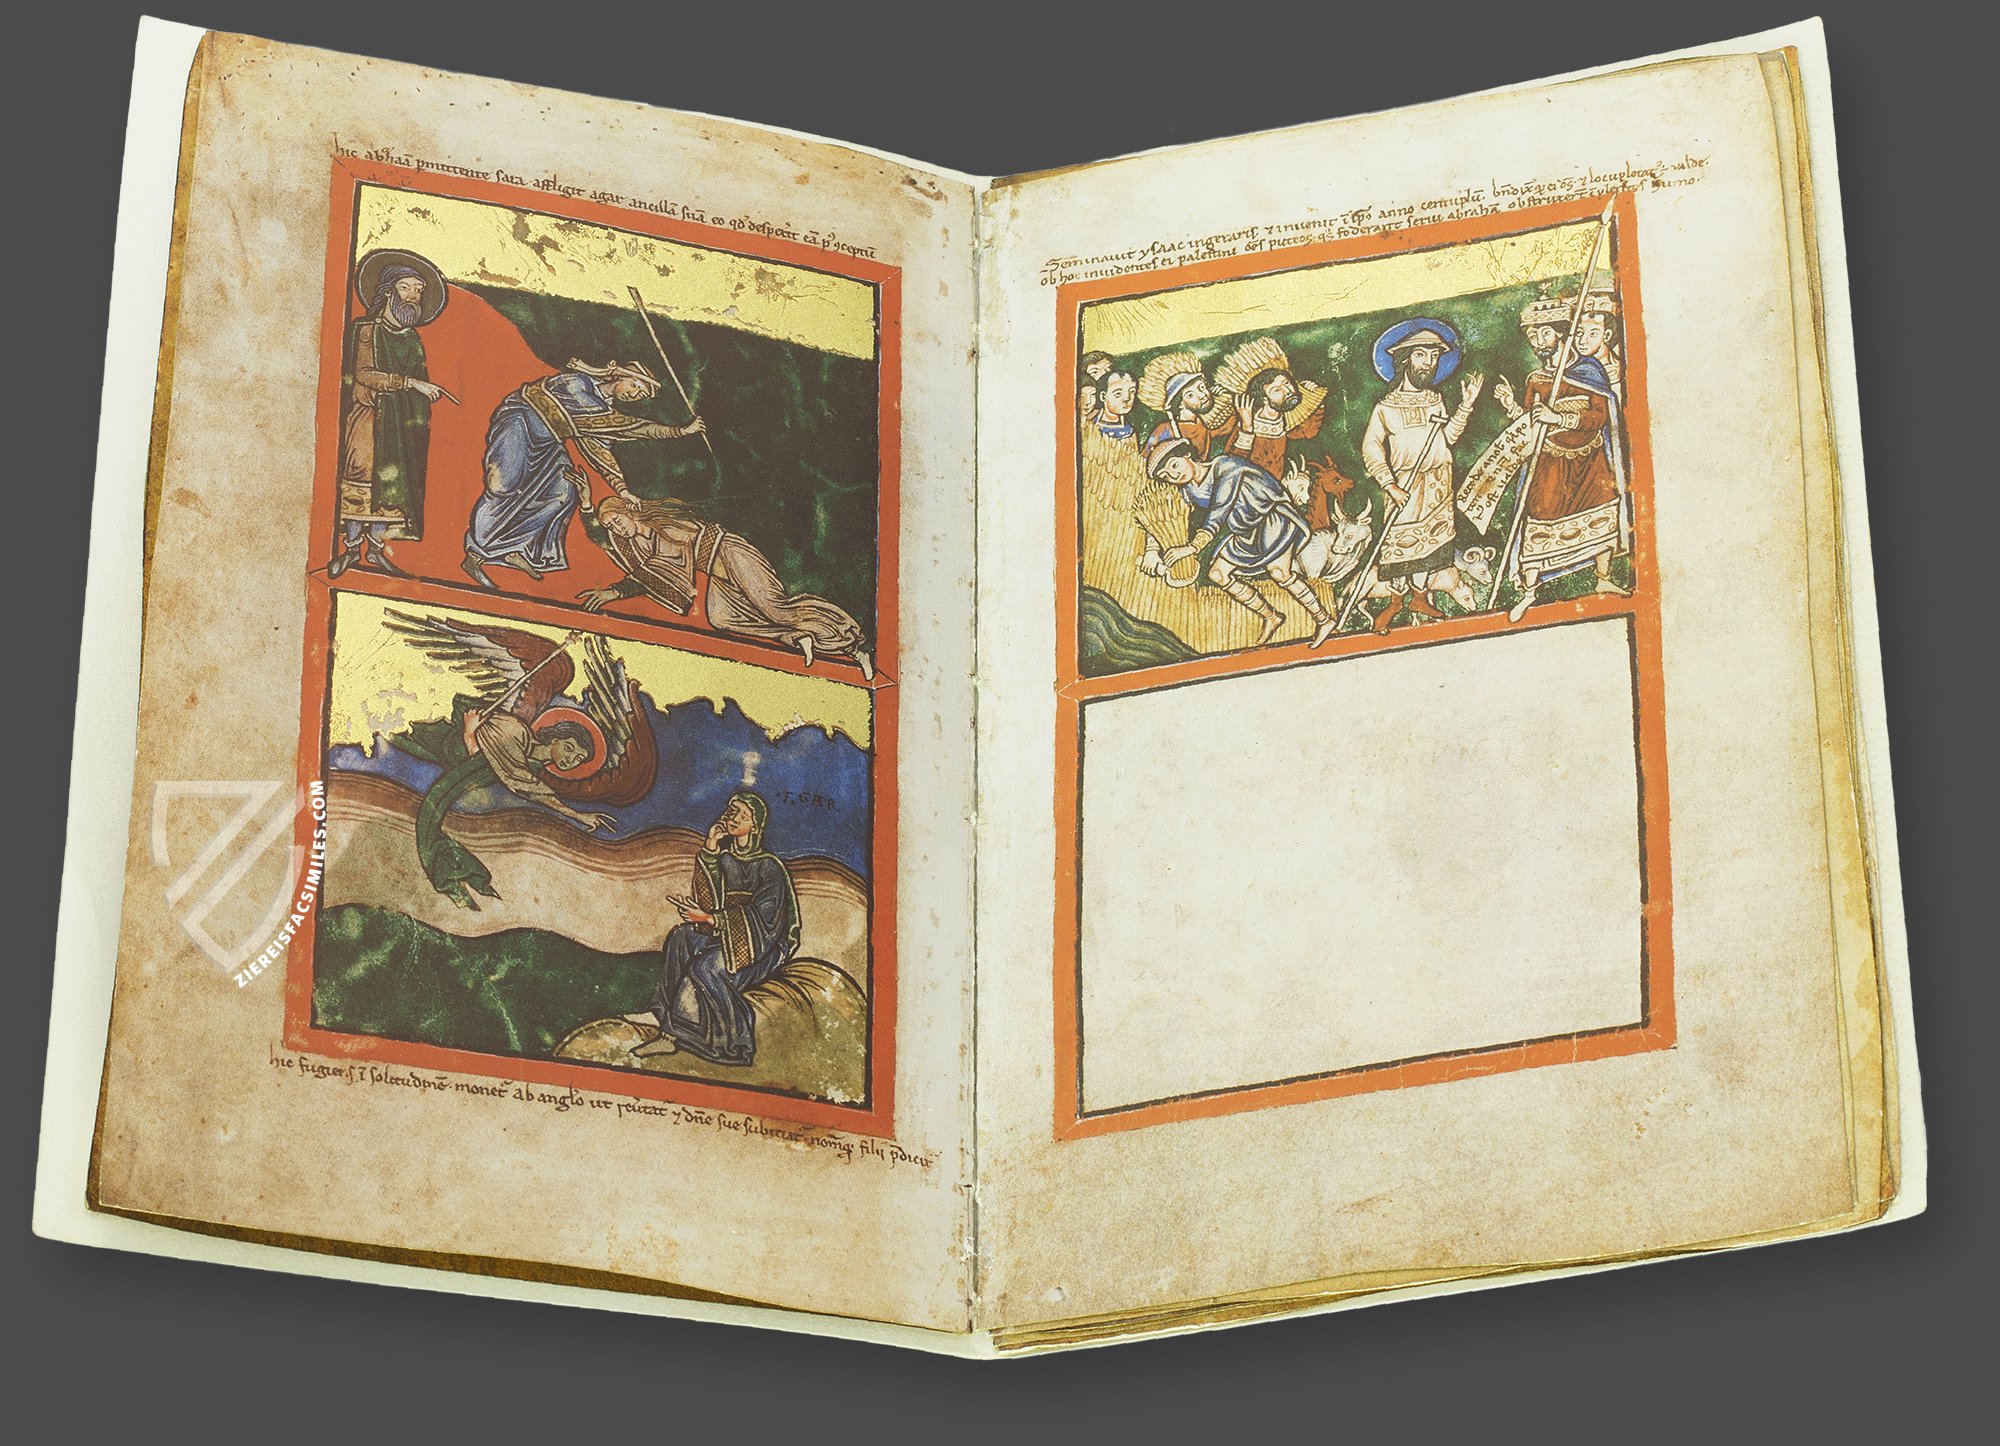 hic abrhaā pmittente sara affligit agar ancillā suā eo qd despexit eā p 9ceptū
AGAR
hic fugiens ī solitudinē monet ab anglo ut revtat ꝛ dn̄e sue subiciat nomq filii p̄dicit
Seminavit ysaac in geraris ꝛ invenit ī ipso anno centuplū bn̄dixq ei dn̄s ꝛ locupletat valde
ob hoc invidentes ei palestini om̄s puteos qs foderant servi abrahā obstruxert īplentes humo
Recede a nob
ZIEREISFACSIMILES.COM